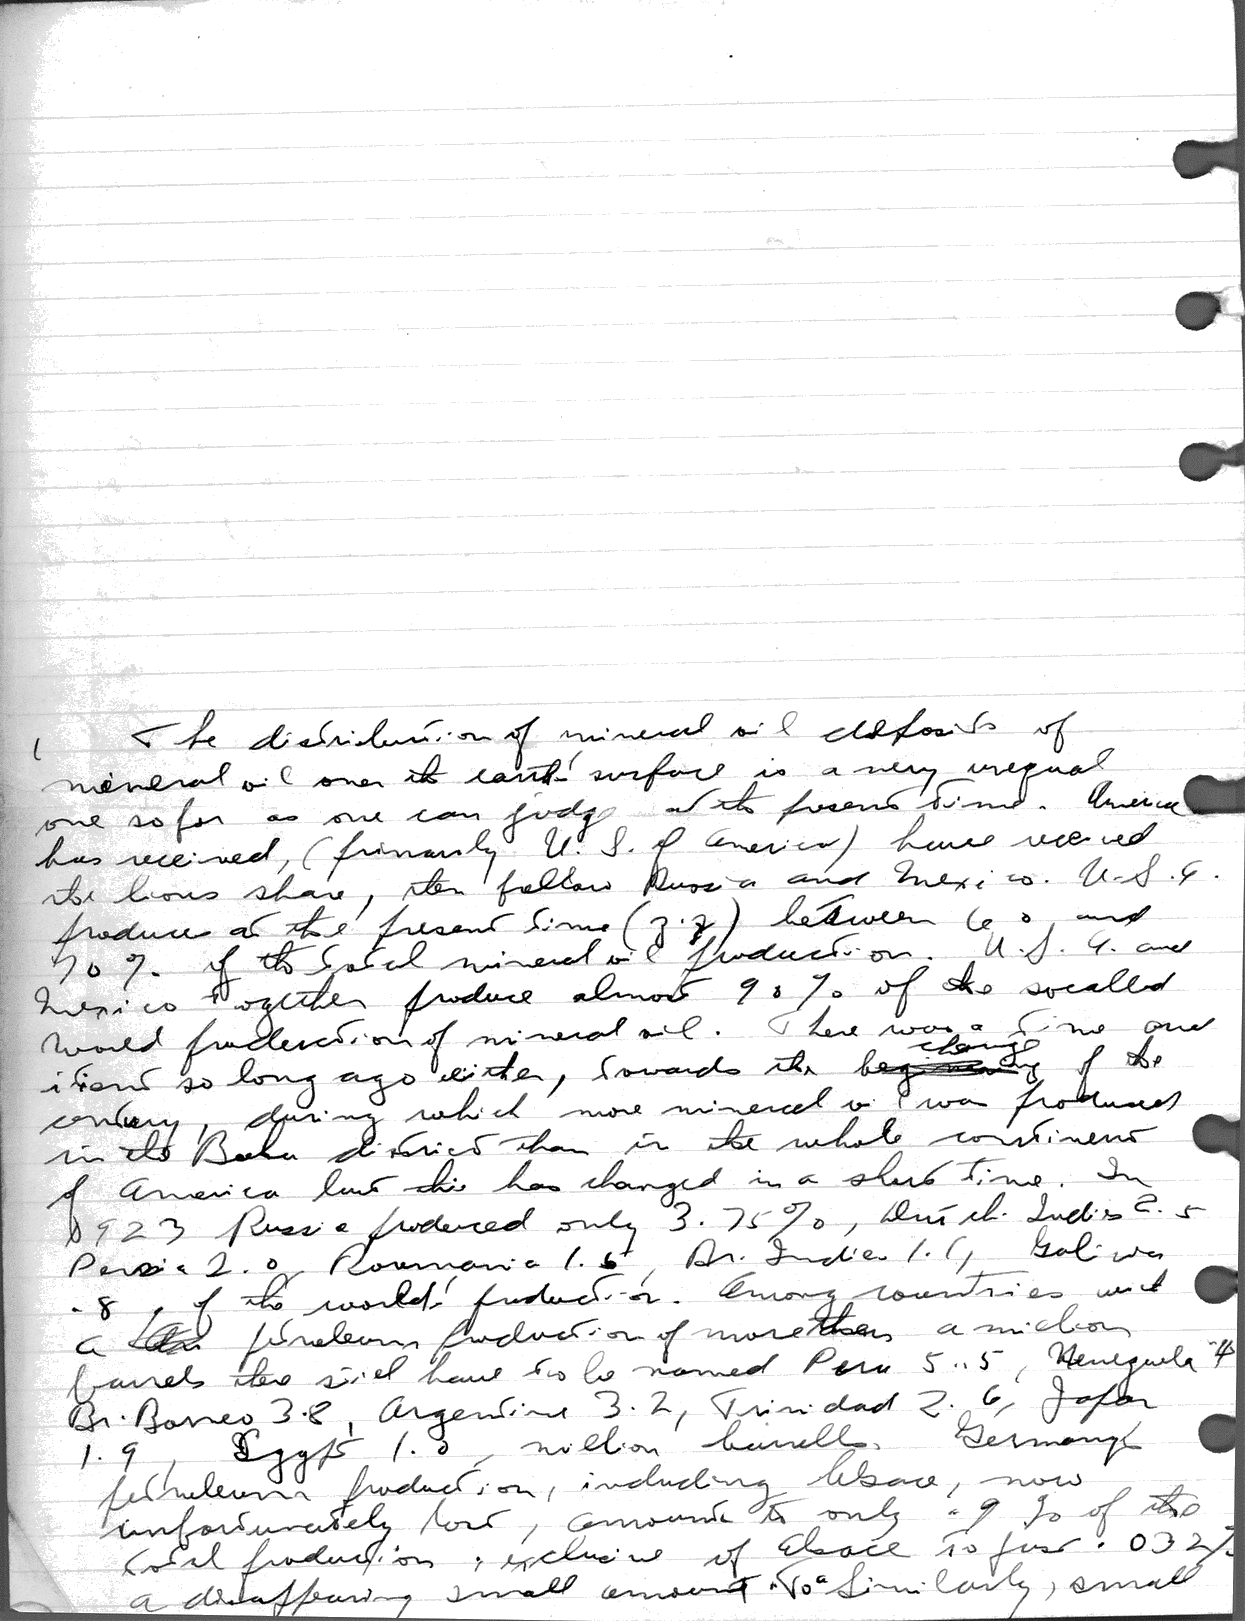 1 The distribution of mineral oil deposits of
mineral oil over the earth' surface is a very unequal
one so far as one can judge at the present time. America
has received, (primarily U. S. of America) have received
the lions share, then follow Russia and Mexico. U.S.A.
produce at the present time (z.z) between 60 and
70%. of the total mineral oil production. U.S.A. and
Mexico together produce almost 90% of the socalled
World production of mineral oil. There was a time and
it isnt so long ago either, towards the change of the
century, during which more mineral oil was produced
in the Baku district than in the whole continent
of America but this has changed in a short time. In
1923 Russia produced only 3.75%, Dutch Indies 2.5
Persia 2.0, Roumania 1.5, Br. India 1.1, Galicia
.8, of the world' production. Among countries with
a petroleum production of more than a million
barrels there still have to be named Peru 5.5, Venezuela 4
Br. Borneo 3.8, Argentine 3.2, Trinidad 2.6, Japan
1.9, Egypt 1.0, million barrells. Germany's
petroleum production, including Elsace, now
unfortunately lost, amounts to only .9 % of the
total production, exclusive of Elsace to just .032%
a disappearing small amount. To a Similarly, small